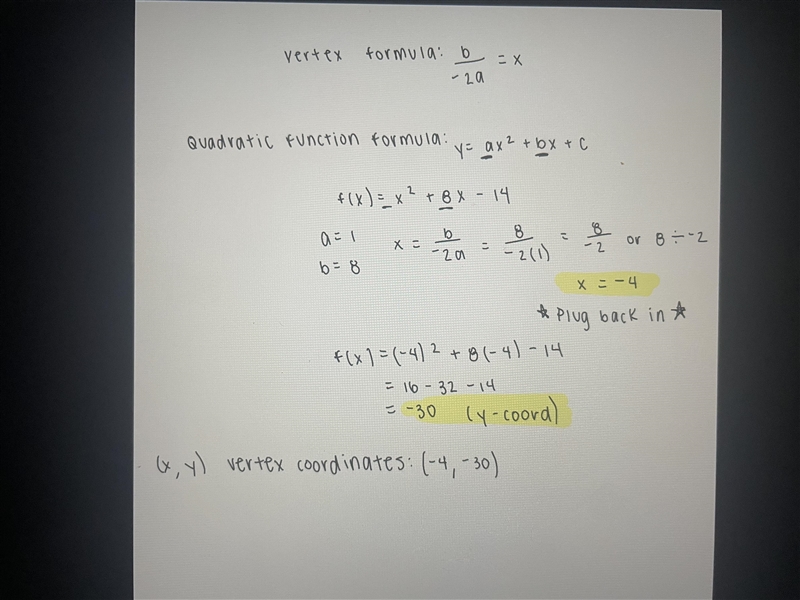 vertex formula: b/-2a = x
Quadratic function formula: y = ax² + bx + c
f(x) = x² + 8x - 14
a = 1
b = 8
x = b/-2a = 8/-2(1) = 8/-2 or 8 ÷ -2
x = -4
★ Plug back in ★
f(x) = (-4)² + 8(-4) - 14
= 16 - 32 - 14
= -30 (y-coord)
(x, y) vertex coordinates: (-4, -30)